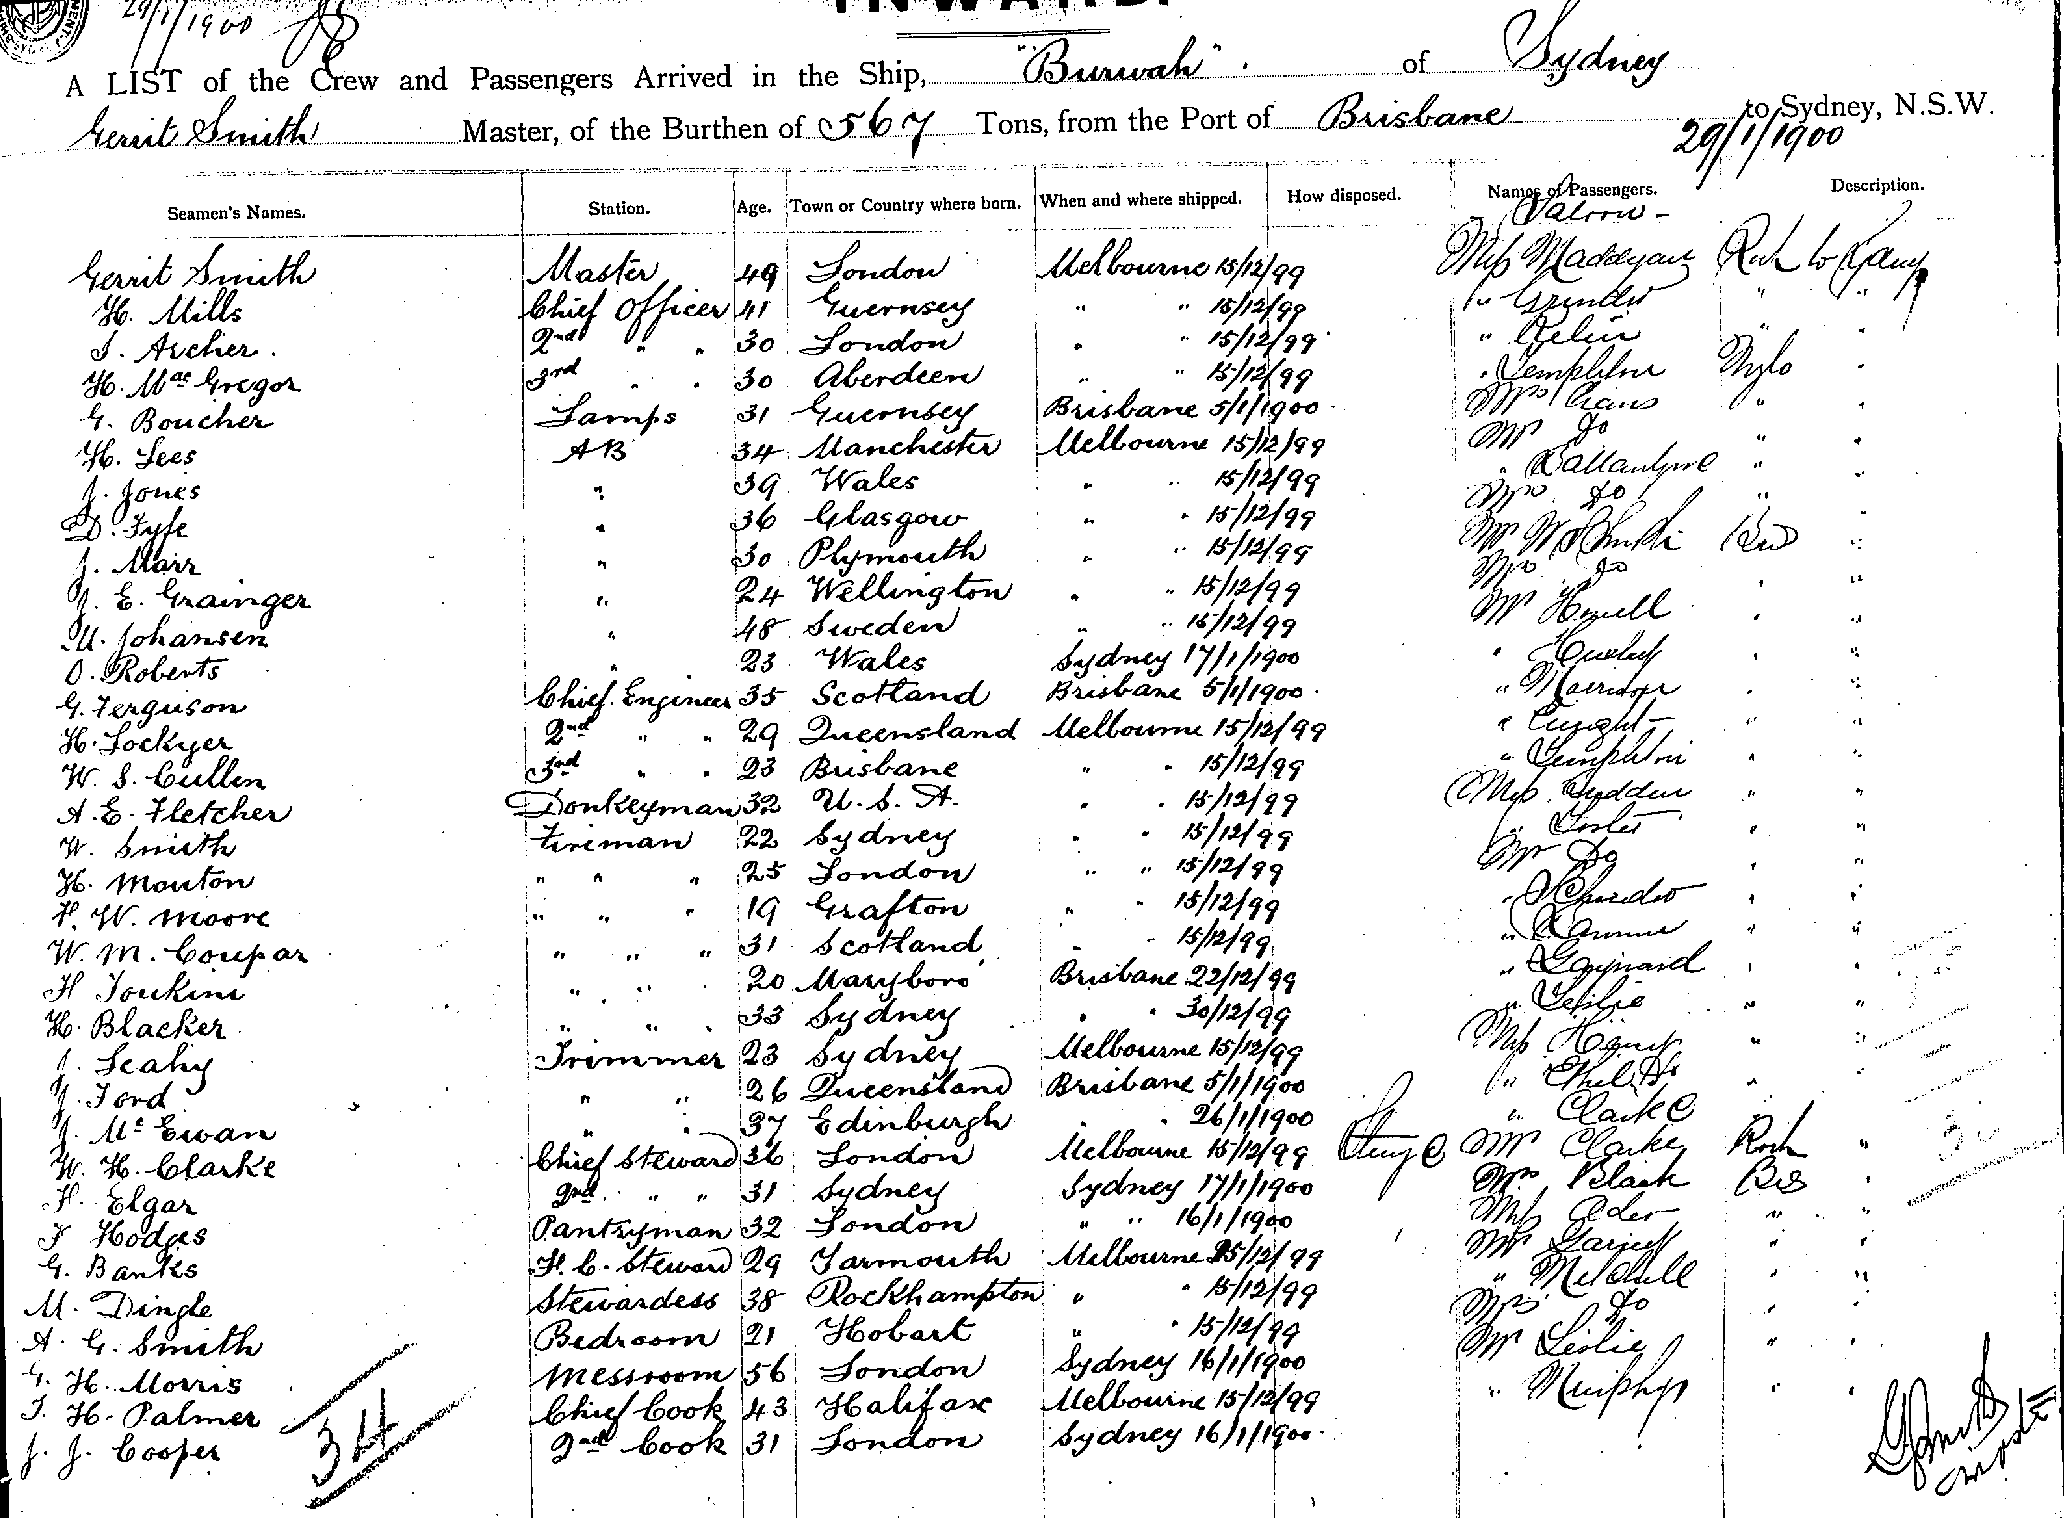 29/1/1900
INWARD.
A LIST of the Crew and Passengers Arrived in the Ship, "Burwah" of Sydney
Gerrit Smith Master, of the Burthen of 567 Tons, from the Port of Brisbane to Sydney, N.S.W.
29/1/1900
Seamen's Names. Station. Age. Town or Country where born. When and where shipped. How disposed. Names of Passengers. Description.
Saloon -
Gerrit Smith Master 49 London Melbourne 15/12/99 Miss Rock to
H. Mills Chief Officer 41 Guernsey " " 15/12/99 " " "
J. Archer. 2nd " " 30 London " " 15/12/99 " " "
H. Mac Gregor 3rd " " 30 Aberdeen " " 15/12/99 " Templeton "
G. Boucher Lamps 31 Guernsey Brisbane 5/1/1900 Mrs " "
H. Lees AB 34 Manchester Melbourne 15/12/99 Mr Do " "
J. Jones " 39 Wales " " 15/12/99 " Ballantyne " "
D. Fyfe " 36 Glasgow " " 15/12/99 Mrs Do " "
J. Marr " 30 Plymouth " " 15/12/99 Mr "
J. E. Grainger " 24 Wellington " " 15/12/99 Mrs Do " "
M. Johansen " 48 Sweden " " 15/12/99 Mr " "
O. Roberts " 23 Wales Sydney 17/1/1900 " " "
G. Ferguson Chief Engineer 35 Scotland Brisbane 5/1/1900 " Morrison " "
H. Lockyer 2nd " " 29 Queensland Melbourne 15/12/99 " " "
W. S. Cullen 3rd " " 23 Brisbane " " 15/12/99 " Templeton " "
A. E. Fletcher Donkeyman 32 U. S. A. " " 15/12/99 Miss " "
W. Smith Fireman 22 Sydney " " 15/12/99 " Foster " "
H. Mouton " " " 25 London " " 15/12/99 Mr Do " "
F. W. Moore " " " 19 Grafton " " 15/12/99 " " "
W. M. Coupar " " " 31 Scotland " " 15/12/99 " " "
H Tonkins " " " 20 Maryboro Brisbane 22/12/99 " Gaynard " "
H. Blacker " " " 33 Sydney " " 30/12/99 " Leslie " "
J. Leahy Trimmer 23 Sydney Melbourne 15/12/99 Miss " "
J. Ford " " 26 Queensland Brisbane 5/1/1900 " " "
J. Mc Ewan " " 37 Edinburgh " " 26/1/1900 " Clarke
W. H. Clarke Chief Steward 36 London Melbourne 15/12/99 Mr Clarke Rock "
F. Elgar 2nd " " 31 Sydney Sydney 17/1/1900 Mrs Black Bris "
F Hodges Pantryman 32 London " " 16/1/1900 Miss " "
G. Banks F. C. Steward 29 Yarmouth Melbourne 15/12/99 Mr " "
M. Dingle Stewardess 38 Rockhampton " " 15/12/99 " Mitchell " "
A. G. Smith Bedroom 21 Hobart " " 15/12/99 Mrs Do " "
G. H. Morris Messroom 56 London Sydney 16/1/1900 Mr Leslie " "
T. H. Palmer Chief Cook 43 Halifax Melbourne 15/12/99 " Murphy " "
J. J. Cooper 2nd Cook 31 London Sydney 16/1/1900
34